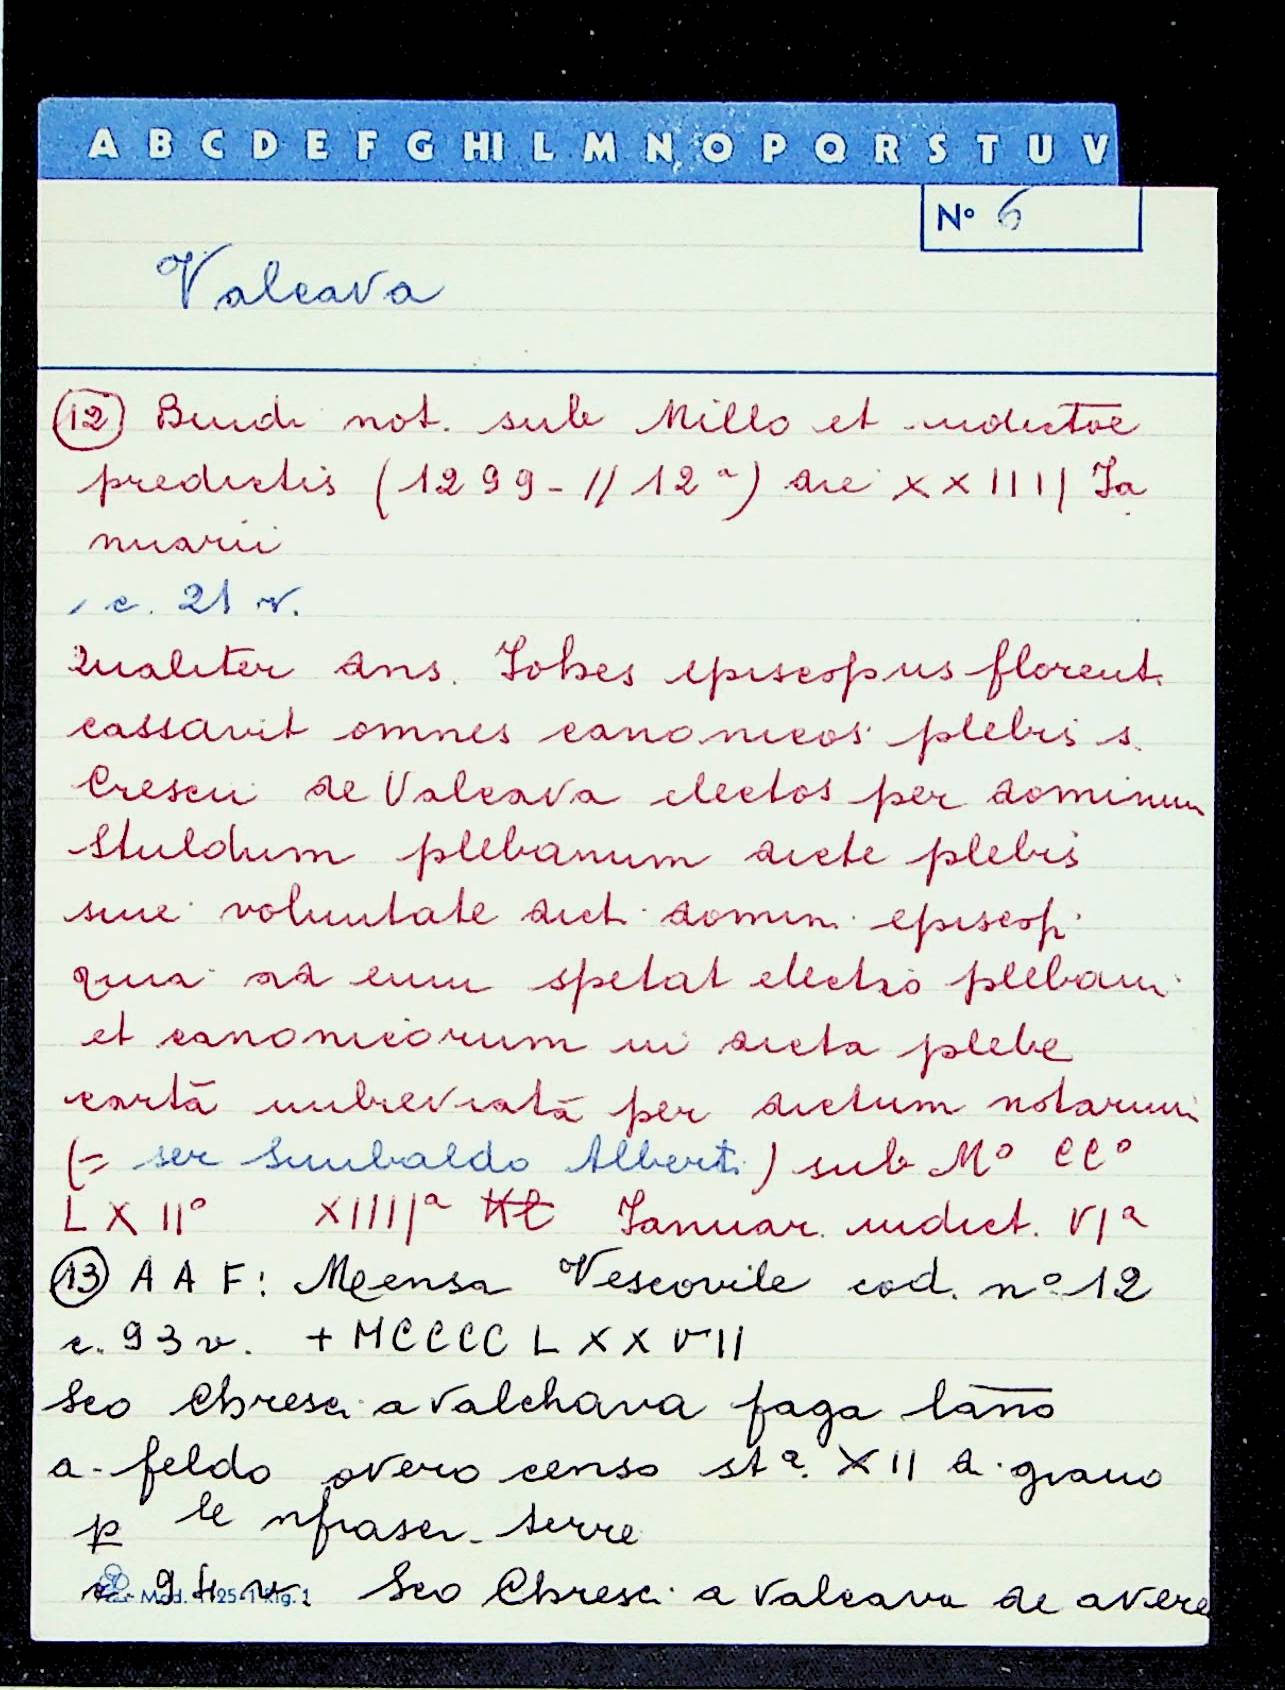 A B C D E F G HI L M N O P Q R S T U V
Nº 6
Valcava
(12) Bindi not. sub Millo et indictōe
predictis (1299 - // 12ª) die XXIIII Ja
nuarii
c. 21 v.
Qualiter dns. Johes episcopus florent.
cassavit omnes canonicos plebis s.
Cresci de Valcava electos per dominum
Stuldum plebanum dicte plebis
sine voluntate dicti domini episcopi
quia ad eum spetat electio plebani
et canonicorum in dicta plebe
cartā imbreviatā per dictum notarium
(= ser Sinibaldo Alberti) sub Mº CCº
LXIIº XIIIIª Kl Januar. indict. VIª
(13) A A F: Mensa Vescovile cod. nº 12
c. 93 v. + MCCCC L X X V II
Sco Chresci a Valchava paga lanno
a feldo overo censo stª. XII di grano
p le nfrascr. terre
c 94 v. Sco Chresci a Valcava de avere
Mod. 125-1 Rig. 1